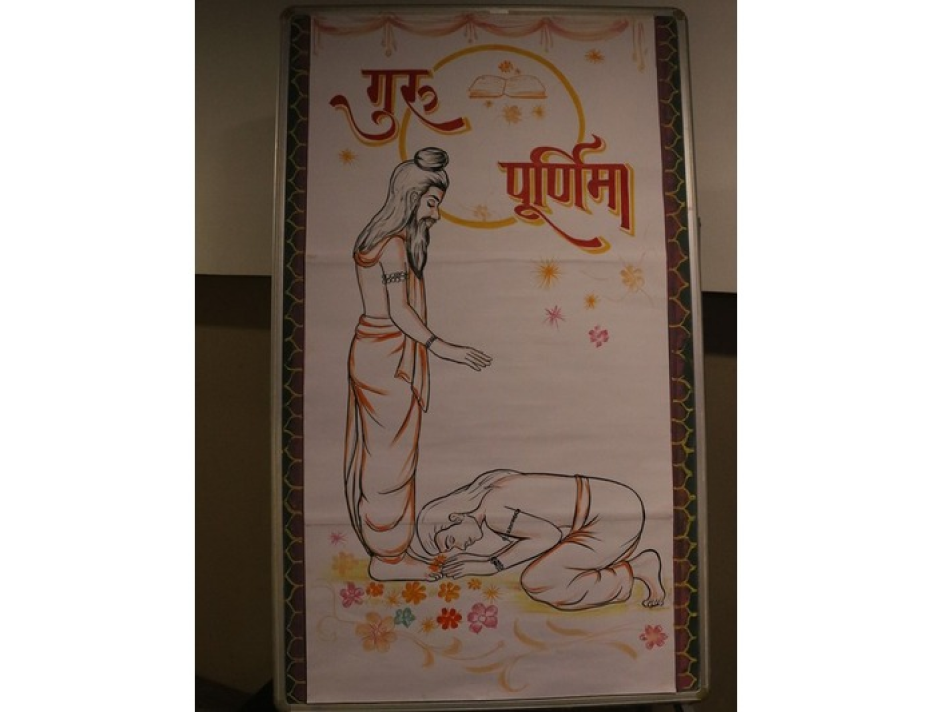 गुरू
पूर्णिमा